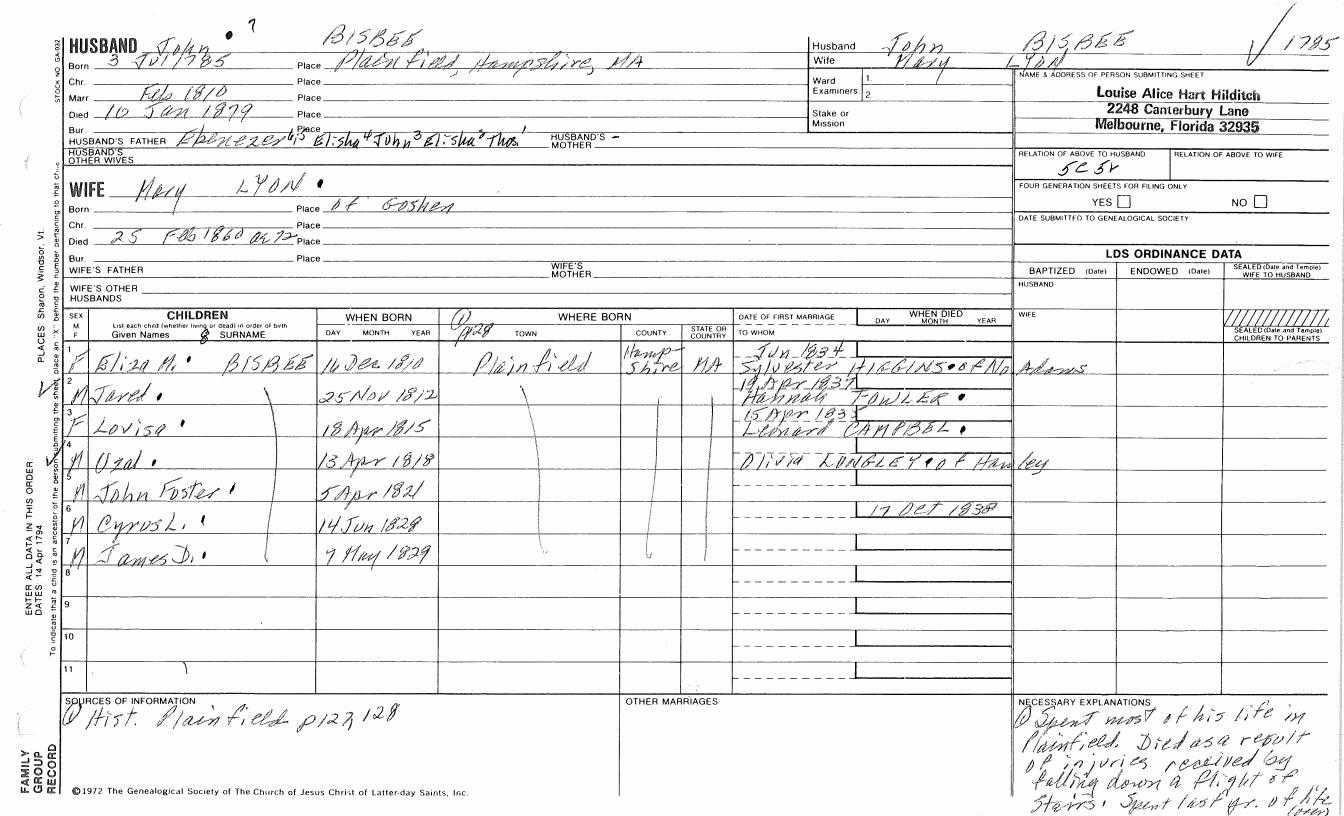 ?
HUSBAND John BISBEE
Born 3 Jul 1785 Place Plainfield, Hampshire, MA
Chr. Place
Marr Feb 1810 Place
Died 10 Jan 1879 Place
Bur. Place
HUSBAND'S FATHER Ebenezer Elisha 4 John 3 Elisha 2 Thos. 1 HUSBAND'S MOTHER –
HUSBAND'S OTHER WIVES
Husband John BISBEE √ 1785
Wife Mary LYON
Ward Examiners 1. 2.
Stake or Mission
NAME & ADDRESS OF PERSON SUBMITTING SHEET
Louise Alice Hart Hilditch
2248 Canterbury Lane
Melbourne, Florida 32935
RELATION OF ABOVE TO HUSBAND RELATION OF ABOVE TO WIFE
5c 5r
FOUR GENERATION SHEETS FOR FILING ONLY
YES NO
DATE SUBMITTED TO GENEALOGICAL SOCIETY
WIFE Mary LYON
Born Place of Goshen
Chr. Place
Died 25 Feb 1860 ae 72 Place
Bur. Place
WIFE'S FATHER WIFE'S MOTHER
WIFE'S OTHER HUSBANDS
LDS ORDINANCE DATA
BAPTIZED (Date) ENDOWED (Date) SEALED (Date and Temple) WIFE TO HUSBAND
HUSBAND
WIFE
SEALED (Date and Temple) CHILDREN TO PARENTS
SEX M F CHILDREN WHEN BORN WHERE BORN DATE OF FIRST MARRIAGE WHEN DIED
List each child (whether living or dead) in order of birth
Given Names SURNAME DAY MONTH YEAR ① p128 TOWN COUNTY STATE OR COUNTRY TO WHOM DAY MONTH YEAR
1 F Eliza M. BISBEE 16 Dec 1810 Plainfield Hampshire MA Jun 1834 Sylvester HIGGINS of No Adams
2 M Jared 25 Nov 1812 19 Apr 1837 Hannah FOWLER
3 F Lovisa 18 Apr 1815 15 Apr Leonard CAMPBEL
4 M Uzal 13 Apr 1818 Olivia LONGLEY of Hawley
5 M John Foster 5 Apr 1821
6 M Cyrus L. 14 Jun 1828 17 Oct 1838
7 M James D. 7 May 1829
8
9
10
11
SOURCES OF INFORMATION
① Hist. Plainfield p127, 128
OTHER MARRIAGES
NECESSARY EXPLANATIONS
① Spent most of his life in
Plainfield. Died as a result
of injuries received by
falling down a flight of
Stairs. Spent last yr. of life
(over)
©1972 The Genealogical Society of The Church of Jesus Christ of Latter-day Saints, Inc.
STOCK NO. GA-032
FAMILY GROUP RECORD
ENTER ALL DATA IN THIS ORDER
DATES 14 Apr 1794 PLACES Sharon, Windsor, Vt.
To indicate that a child is an ancestor of the person submitting the sheet, place an "X" behind the number pertaining to that child.